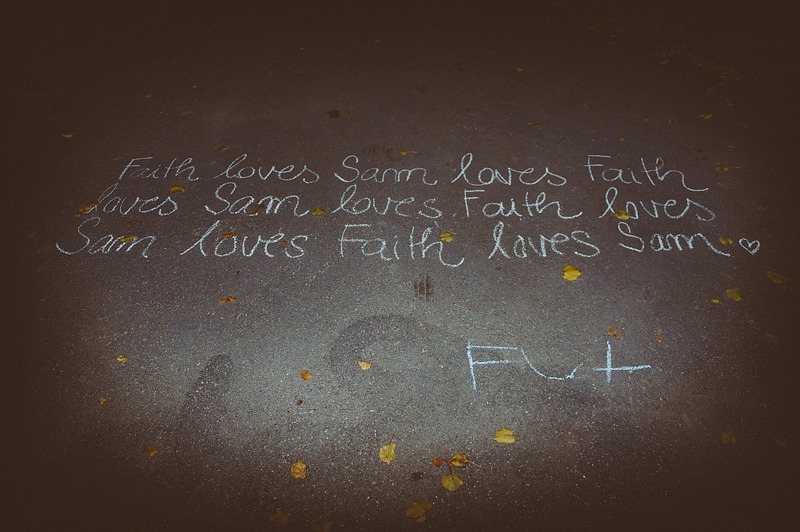 Faith loves Sam loves Faith
loves Sam loves Faith loves
Sam loves Faith loves Sam ♡